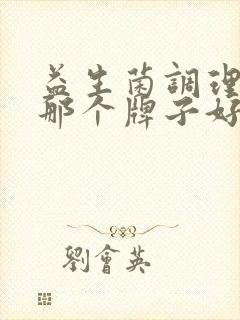 益生菌調理
那个牌子好
劉會英